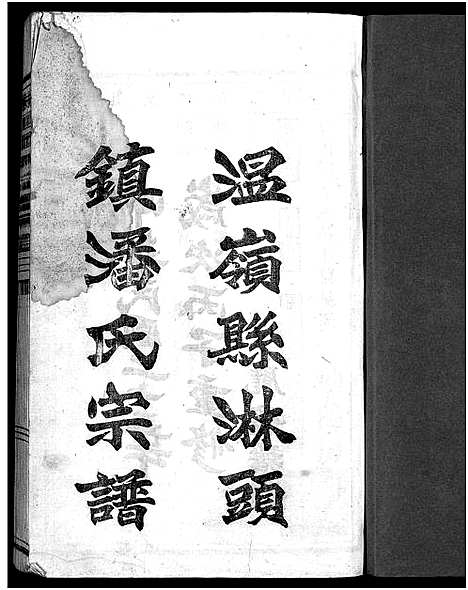 溫嶺縣淋頭
鎮潘氏宗譜